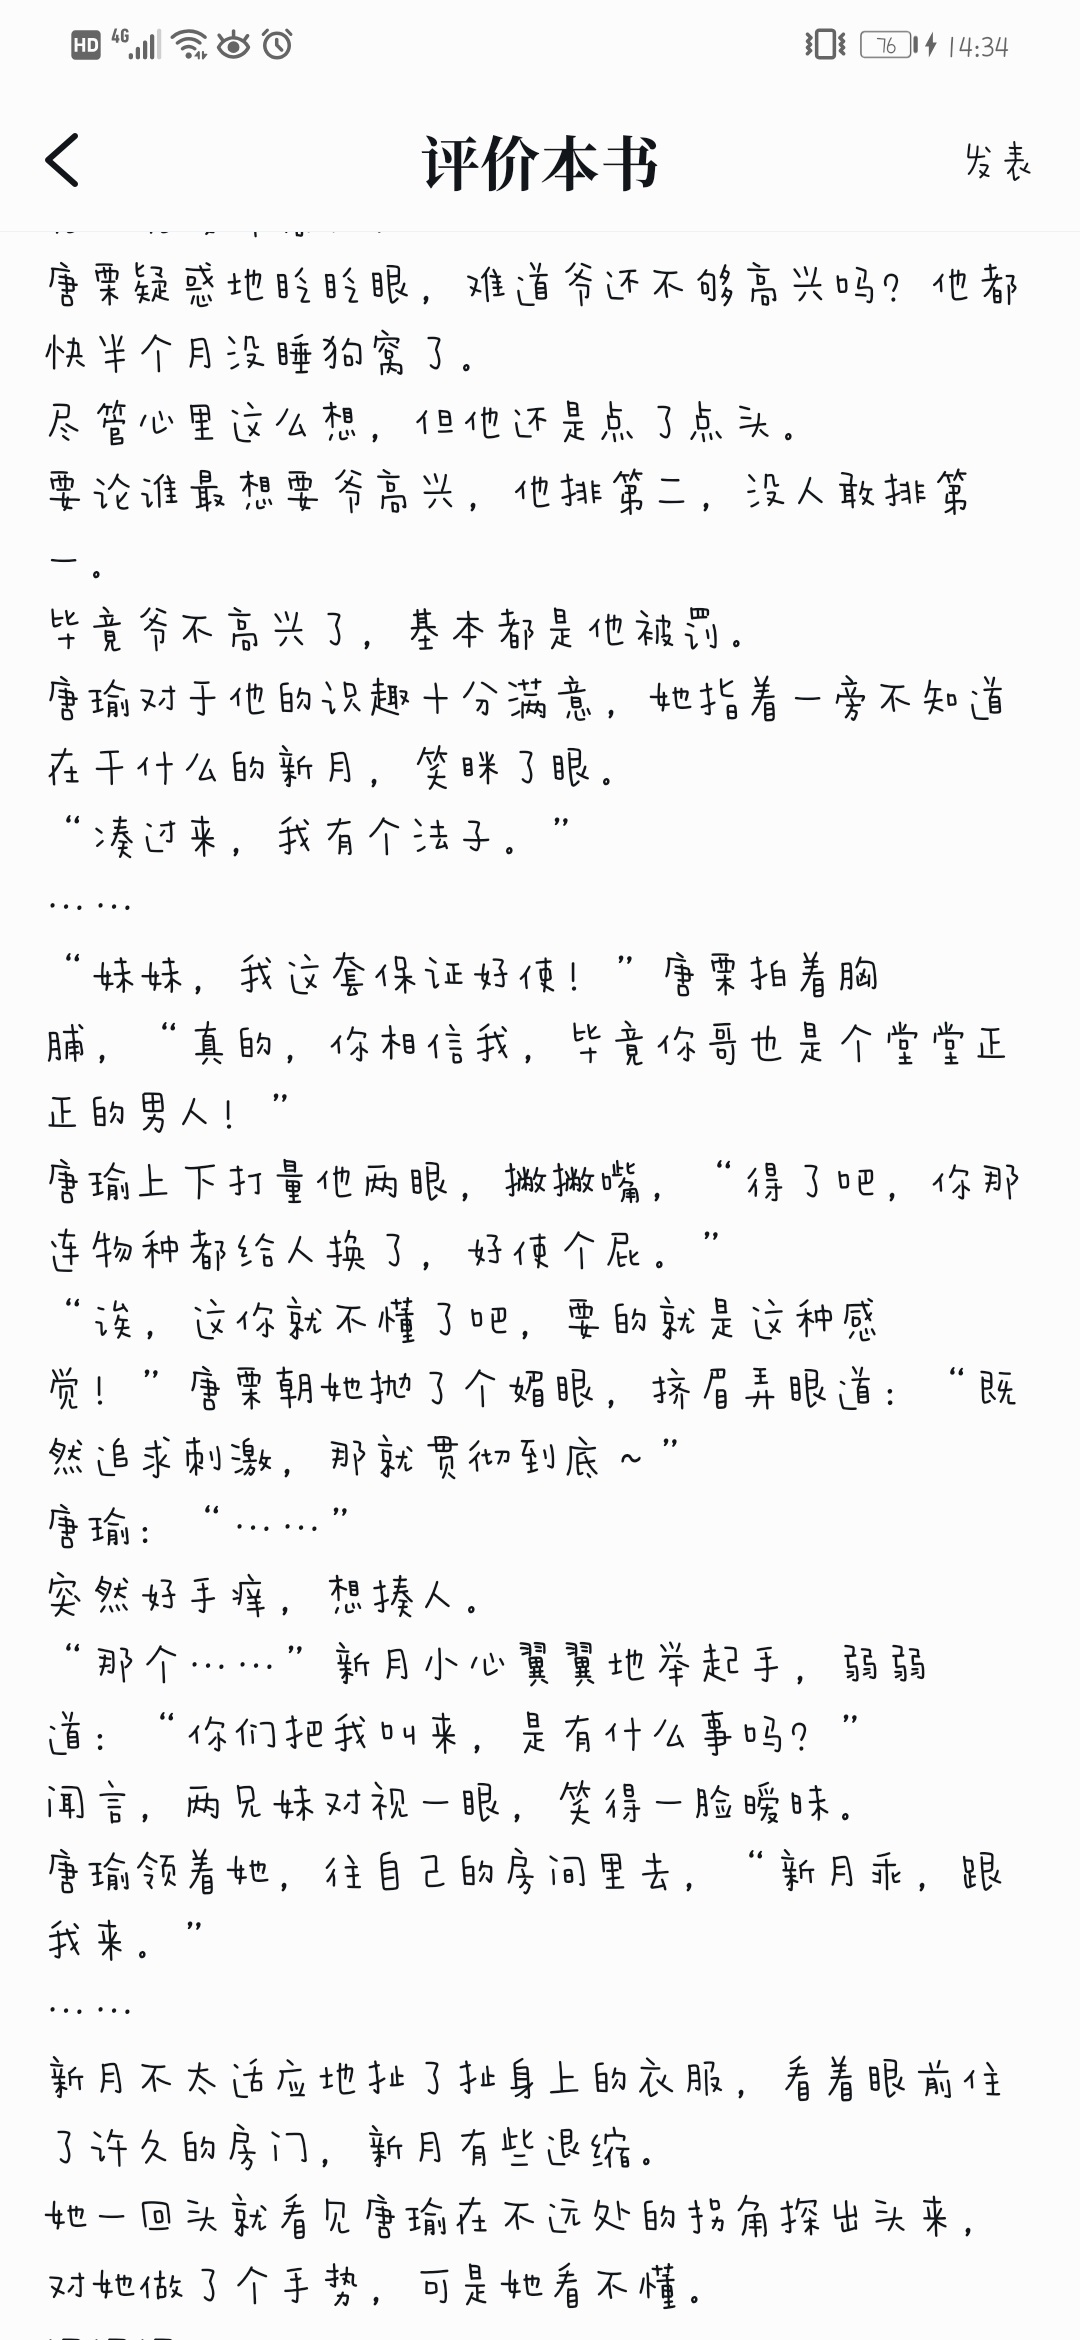 HD 4G 76 14:34
评价本书
发表
唐栗疑惑地眨眨眼，难道爷还不够高兴吗？他都
快半个月没睡狗窝了。
尽管心里这么想，但他还是点了点头。
要论谁最想要爷高兴，他排第二，没人敢排第
一。
毕竟爷不高兴了，基本都是他被罚。
唐瑜对于他的识趣十分满意，她指着一旁不知道
在干什么的新月，笑眯了眼。
“凑过来，我有个法子。”
……
“妹妹，我这套保证好使！”唐栗拍着胸
脯，“真的，你相信我，毕竟你哥也是个堂堂正
正的男人！”
唐瑜上下打量他两眼，撇撇嘴，“得了吧，你那
连物种都给人换了，好使个屁。”
“诶，这你就不懂了吧，要的就是这种感
觉！”唐栗朝她抛了个媚眼，挤眉弄眼道：“既
然追求刺激，那就贯彻到底～”
唐瑜：“……”
突然好手痒，想揍人。
“那个……”新月小心翼翼地举起手，弱弱
道：“你们把我叫来，是有什么事吗？”
闻言，两兄妹对视一眼，笑得一脸暧昧。
唐瑜领着她，往自己的房间里去，“新月乖，跟
我来。”
……
新月不太适应地扯了扯身上的衣服，看着眼前住
了许久的房门，新月有些退缩。
她一回头就看见唐瑜在不远处的拐角探出头来，
对她做了个手势，可是她看不懂。